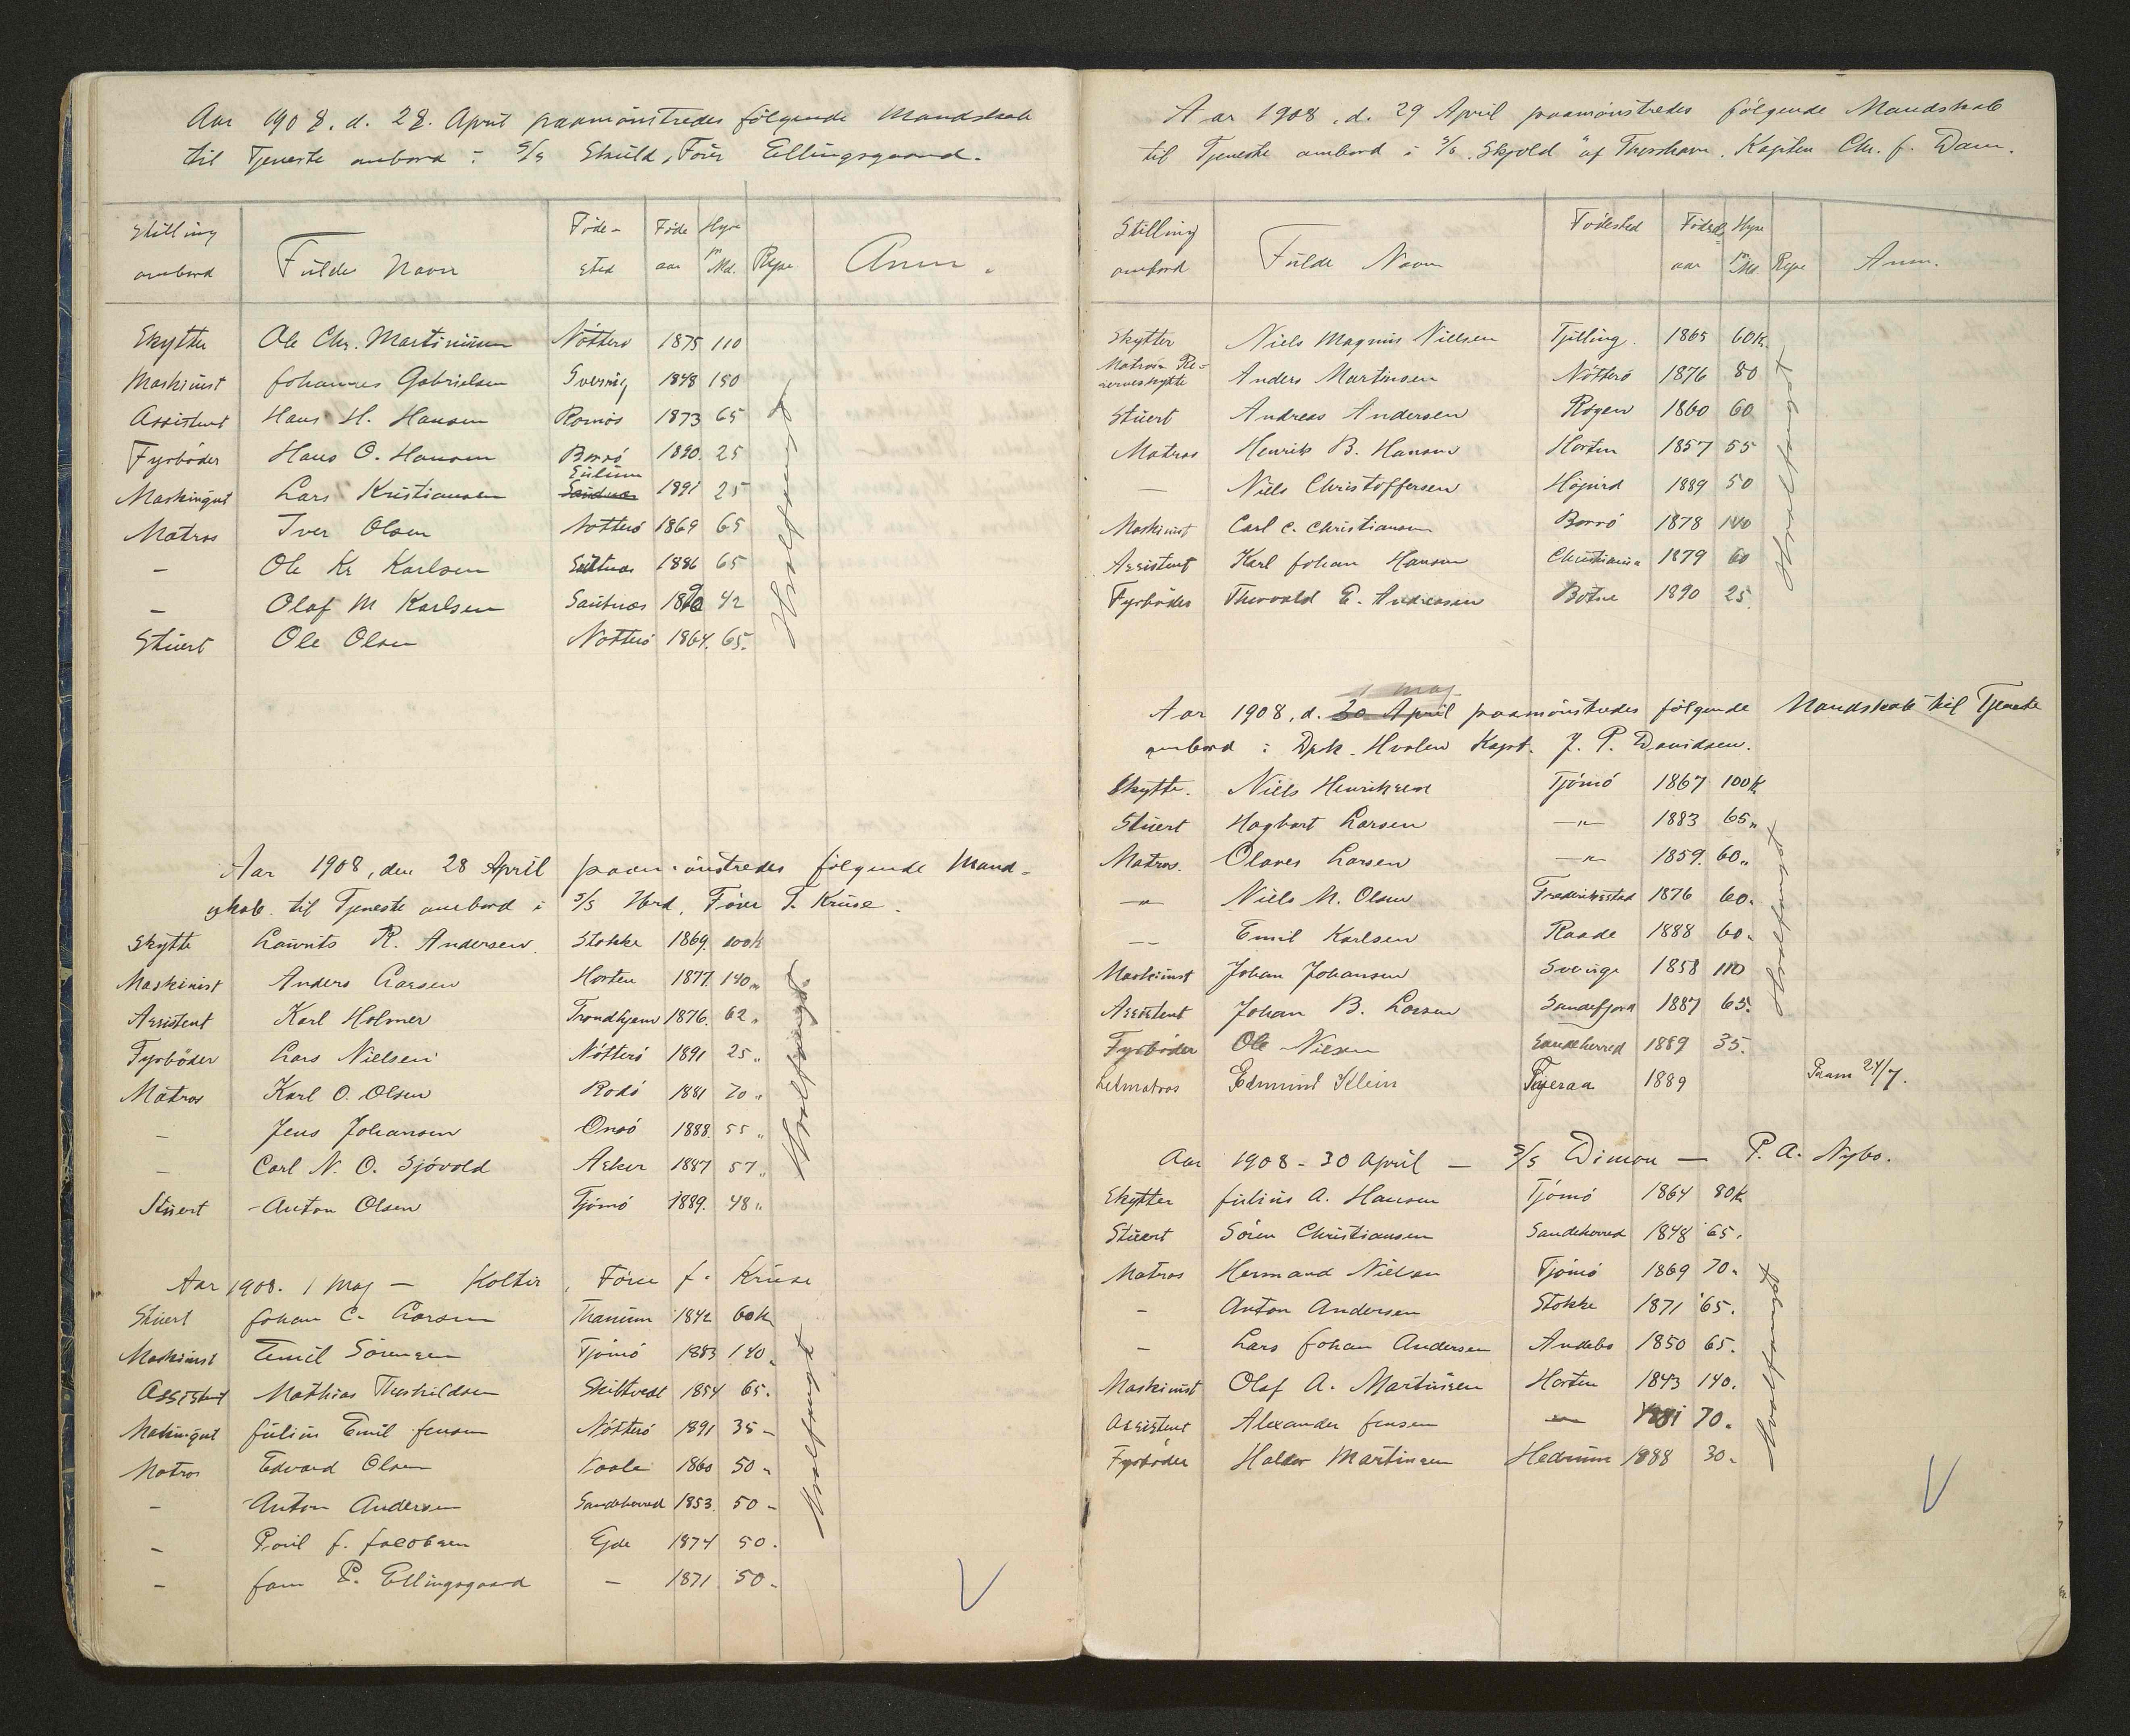 Aar 1908, d. 28. April paamönstredes fölgende Mandskab
til Tjeneste ombord i S/S Skuld, Förer Ellingsgaard.
Stilling ombord Fulde Navn Födested Födeaar Hyre pr Md. Rejse Anm.
Skytter Ole Chr. Martiniusen Nötterö 1875 110
Maskinist Johannes Gabrielsen Sverrig 1848 150
Assistent Hans H. Hansen Ramnös 1873 65
Fyrböder Hans O. Hansen Borrö 1890. 25
Maskingut Lars Kristiansen 1891 25
Matros Iver Olsen Notterö 1869 65
— Ole Kr Karlsen 1886 65
— Olaf M Karlsen 42
Stuert Ole Olsen Notterö 1864. 65.
Hvalfangst
Aar 1908, den 28 April paamönstredes fölgende Mand-
skab til Tjeneste ombord i S/S Urd, Förer T. Kruse.
Skytte Laurits R. Andersen. Stokke 1869. 100 k
Maskinist Anders Larsen Horten 1877. 140 "
Assistent Karl Holmer Trondhjem 1876. 62 "
Fyrböder Lars Nielsen Nötterö 1891 25 "
Matros Karl O. Olsen Rodö 1881 70 "
— Jens Johansen Onsö 1888. 55 "
— Carl N. O. Sjövold Asker 1887 57 "
Stuert Anton Olsen Tjömö 1889. 48 "
Hvalfangst
Aar 1908. 1 Maj — Kolter, Förer J. Kruse
Stuert Johan C. Larsen Thanum 1842 60 k
Maskinist Emil Sörensen Tjömö 1883 140 "
Assistent Mathias Thorkildsen Skibtvedt 1854 65.
Maskingut Julius Emil Jensen Nötterö 1891 35 -
Matros Edvard Olsen Vaale 1860 50 -
— Anton Andersen Sandeherred 1853. 50 -
— Poul J. Jacobsen Ejde 1874 50.
— P. Ellingsgaard — 1871 50 -
Hvalfangst
Aar 1908, d. 29 April paamönstredes fölgende Mandskab
til Tjeneste ombord i S/S "Skjold" af Thorshavn. Kaptein Chr. J. Dam.
Stilling ombord Fulde Navn Födested Födsels aar Hyre pr Md. Rejse Anm.
Skytter Niels Magnus Nielsen Tjölling. 1865 60 K.
Matros & Re-
serveskytte Anders Martinsen Nötterö 1876 80
Stuert Andreas Andersen Röyen 1860 60
Matros Henrik B. Hansen Horten 1857 55
— Niels Christoffersen Höjord 1889 50
Maskinist Carl C. Christiansen Borrö 1878 140
Assistent Karl Johan Hansen Christiania 1879 60
Fyrböder Thorvald E. Andreasen Botne 1890 25
Hvalfangst
1 Maj
Aar 1908, d. 30 April paamönstredes fölgende Mandskab til Tjeneste
ombord i Dpk. Hvalen Kapt. J. P. Davidsen.
Skytte. Niels Henriksen Tjömö 1867 100 K
Stuert Hagbart Larsen —"— 1883 65 "
Matros. Olaves Larsen —"— 1859. 60 "
—"— Niels M. Olsen Frederiksstad 1876 60.
—— Emil Karlsen Raade 1888 60.
Maskinist Johan Johansen Sverige 1858 110
Assistent Johan B. Larsen Sandefjord 1887 65.
Fyrböder Ole Nilsen Sandeherred 1889 35.
Letmatros Edmund Klein 1889 Paam 24/7.
Hvalfangst
Aar 1908 - 30 April — S/S Dimon — P. A. Nybo.
Skytter Julius A. Hansen Tjömö 1864 80 K
Stuert Sören Christiansen Sandeherred 1848 65.
Matros Hermand Nielsen Tjömö 1869 70 "
— Anton Andersen Stokke 1871 65.
— Lars Johan Andersen Andebo 1850 65.
Maskinist Olaf A. Martinsen Horten 1843 140.
Assistent Alexander Jensen —"— 1881 70.
Fyrböder Haldor Martinsen Hedrum 1888 30 -
Hvalfangst